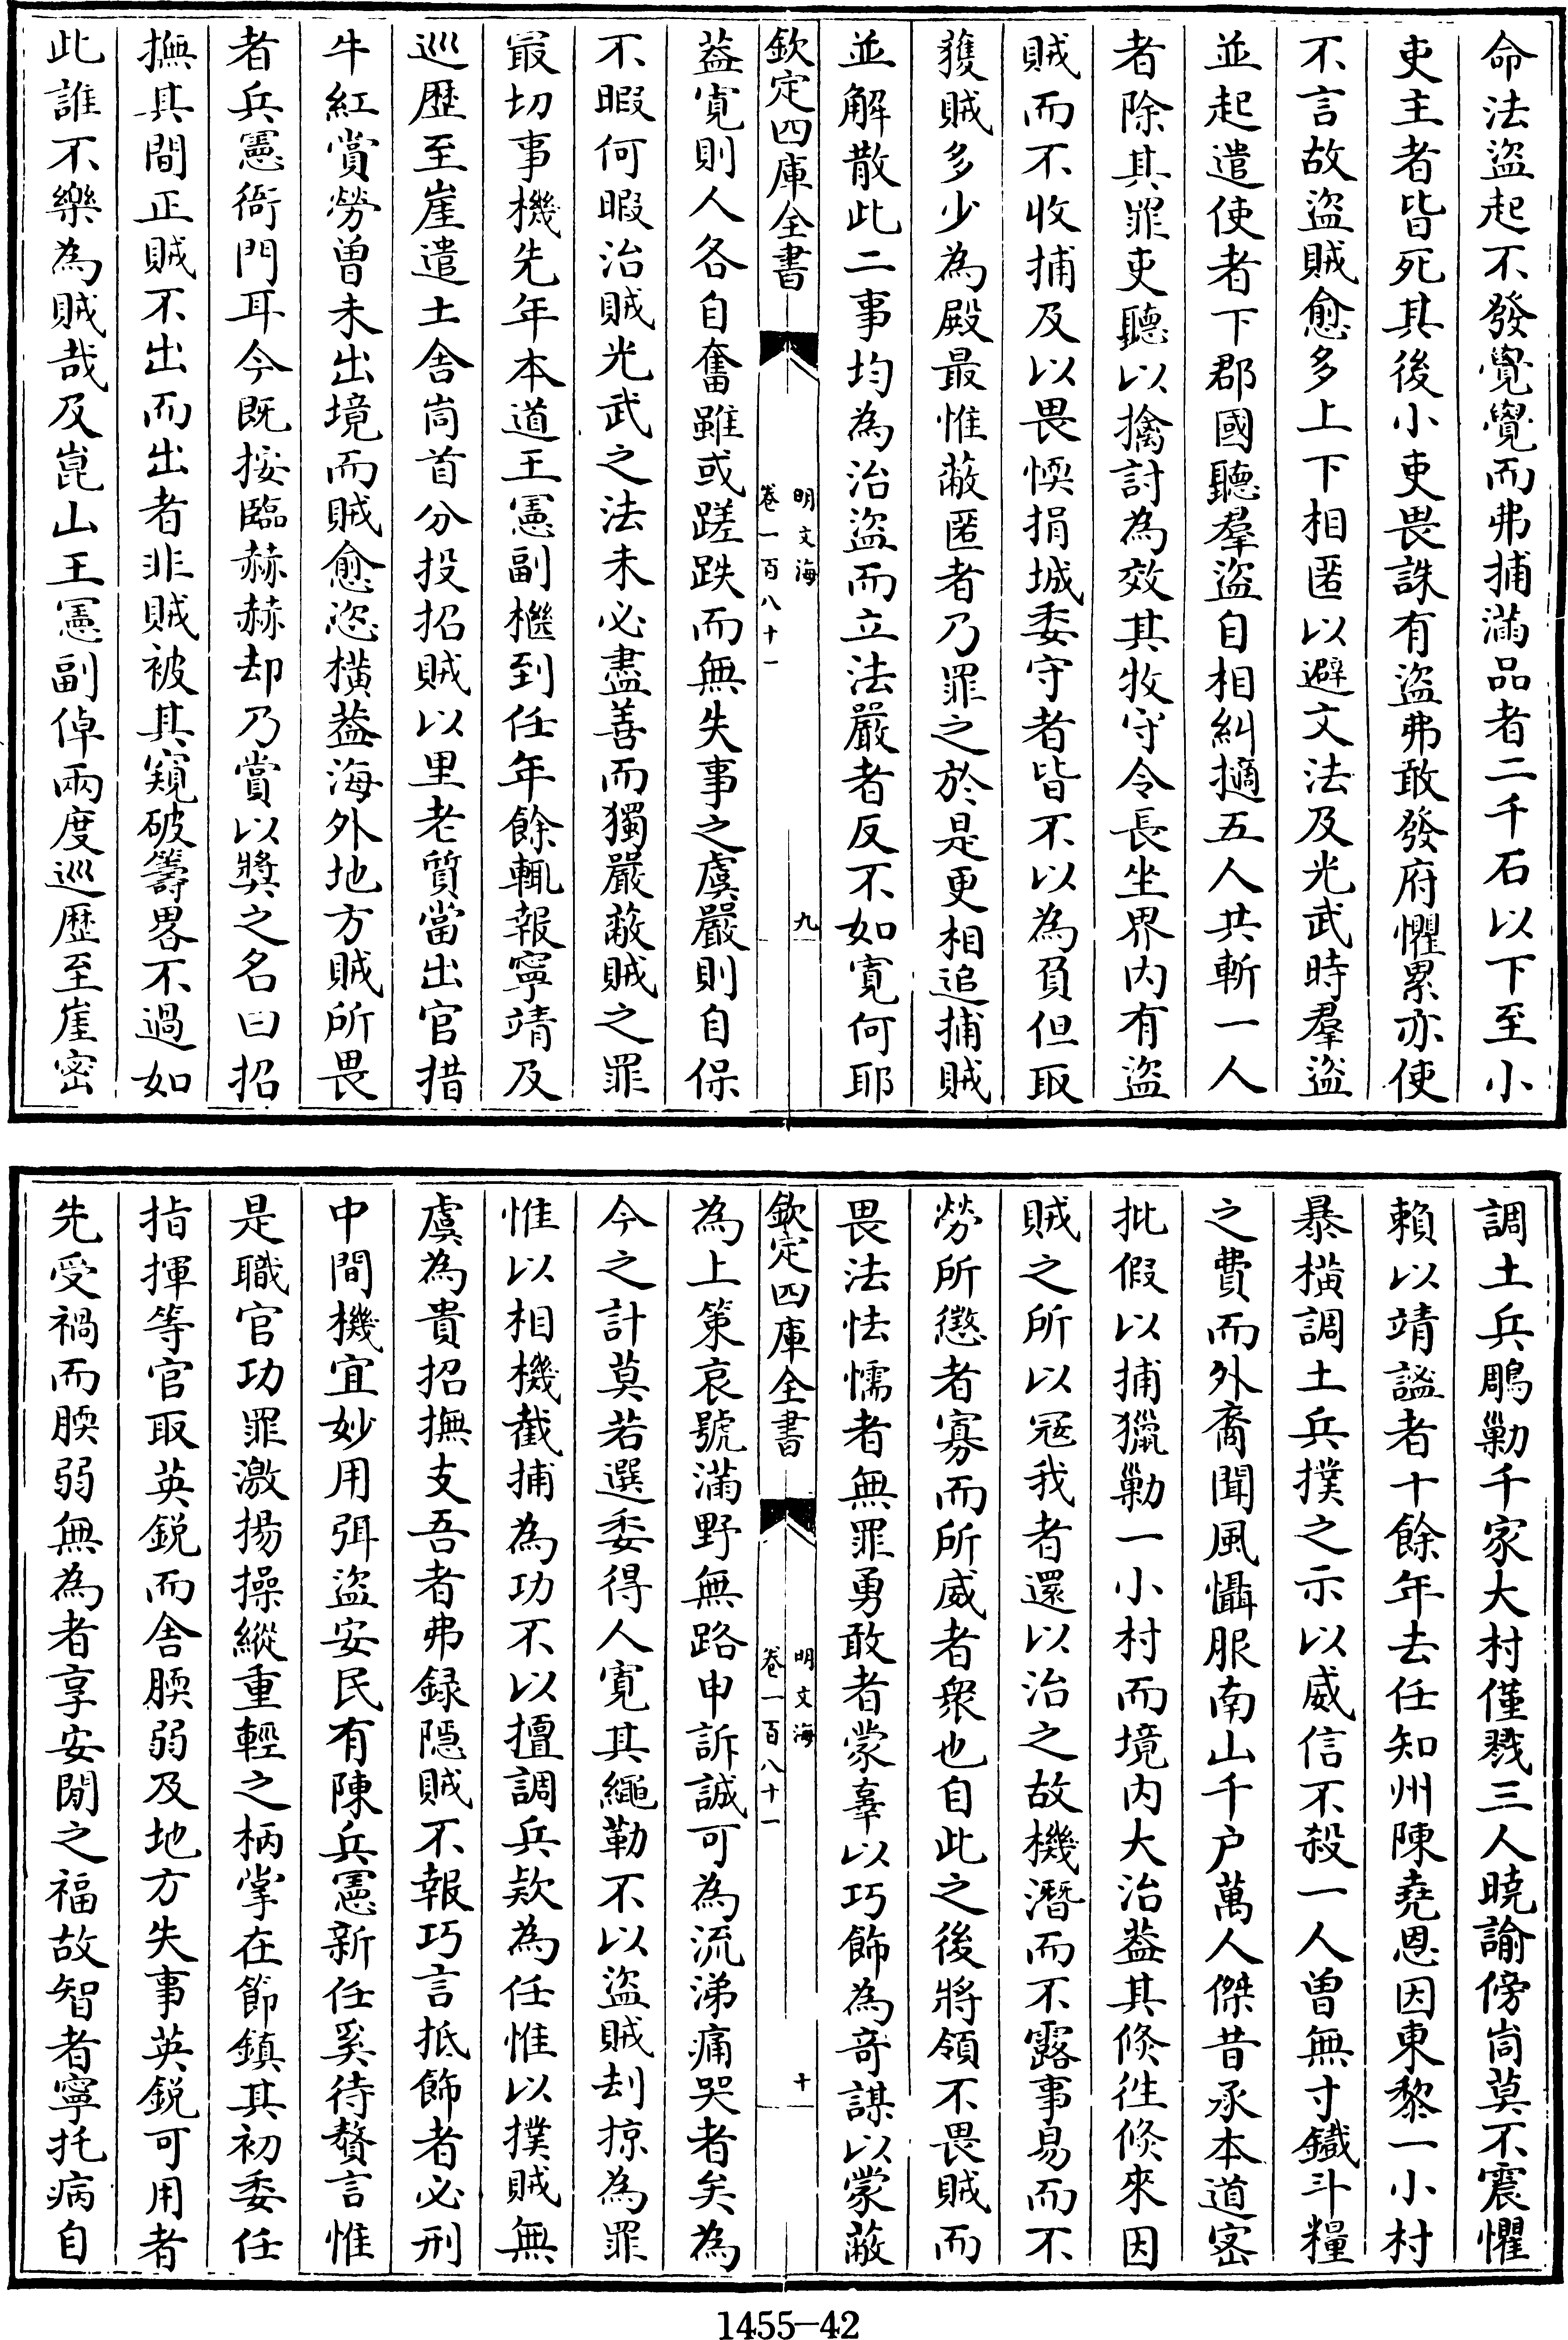 命法盜起不發覺覺而弗捕滿品者二千石以下至小
吏主者皆死其後小吏畏誅有盜弗敢發府懼累亦使
不言故盜賊愈多上下相匿以避文法及光武時羣盜
並起遣使者下郡國聽羣盜自相糾擿五人共斬一人
者除其罪吏聽以擒討為效其牧守令長坐界內有盜
賊而不收捕及以畏愞捐城委守者皆不以為負但取
獲賊多少為殿最惟蔽匿者乃罪之於是更相追捕賊
並解散此二事均為治盜而立法嚴者反不如寛何耶
欽定四庫全書
明文海
卷一百八十一
九
葢寛則人各自奮雖或蹉跌而無失事之虞嚴則自保
不暇何暇治賊光武之法未必盡善而獨嚴蔽賊之罪
最切事機先年本道王憲副檄到任年餘輒報寧靖及
巡歷至崖遣土舍峝首分投招賊以里老質當出官措
牛紅賞勞曽未出境而賊愈恣橫葢海外地方賊所畏
者兵憲衙門耳今既按臨赫赫却乃賞以獎之名曰招
撫其間正賊不出而出者非賊被其窺破籌畧不過如
此誰不樂為賊哉及崑山王憲副倬兩度巡歷至崖密
調土兵鵰勦千家大村僅戮三人曉諭傍峝莫不震懼
賴以靖謐者十餘年去任知州陳堯恩因東黎一小村
暴橫調土兵撲之示以威信不殺一人曽無寸鐵斗糧
之費而外裔聞風懾服南山千户萬人傑昔承本道密
批假以捕獵勦一小村而境內大治葢其倐徃倐來因
賊之所以冦我者還以治之故機潛而不露事易而不
勞所懲者寡而所威者衆也自此之後將領不畏賊而
畏法怯懦者無罪勇敢者蒙辜以巧飾為竒謀以蒙蔽
欽定四庫全書
明文海
卷一百八十一
十
為上策哀號滿野無路申訴誠可為流涕痛哭者矣為
今之計莫若選委得人寛其繩勒不以盜賊刦掠為罪
惟以相機截捕為功不以擅調兵欵為任惟以撲賊無
虞為貴招撫支吾者弗録隠賊不報巧言抵飾者必刑
中間機宜妙用弭盜安民有陳兵憲新任奚待贅言惟
是職官功罪激揚操縱重輕之柄掌在節鎮其初委任
指揮等官取英鋭而舍腝弱及地方失事英鋭可用者
先受禍而腝弱無為者享安閒之福故智者寧托病自
1455-42